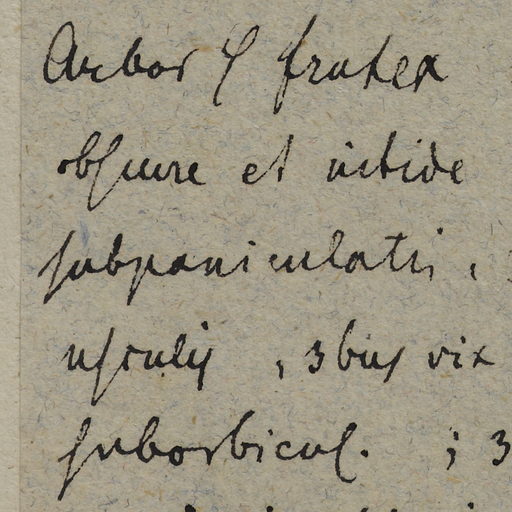 Arbor ſ frutex
obſcure et nitide
ſubpaniculatis,
uſculis , 3bus vix
ſuborbicul. ; 3